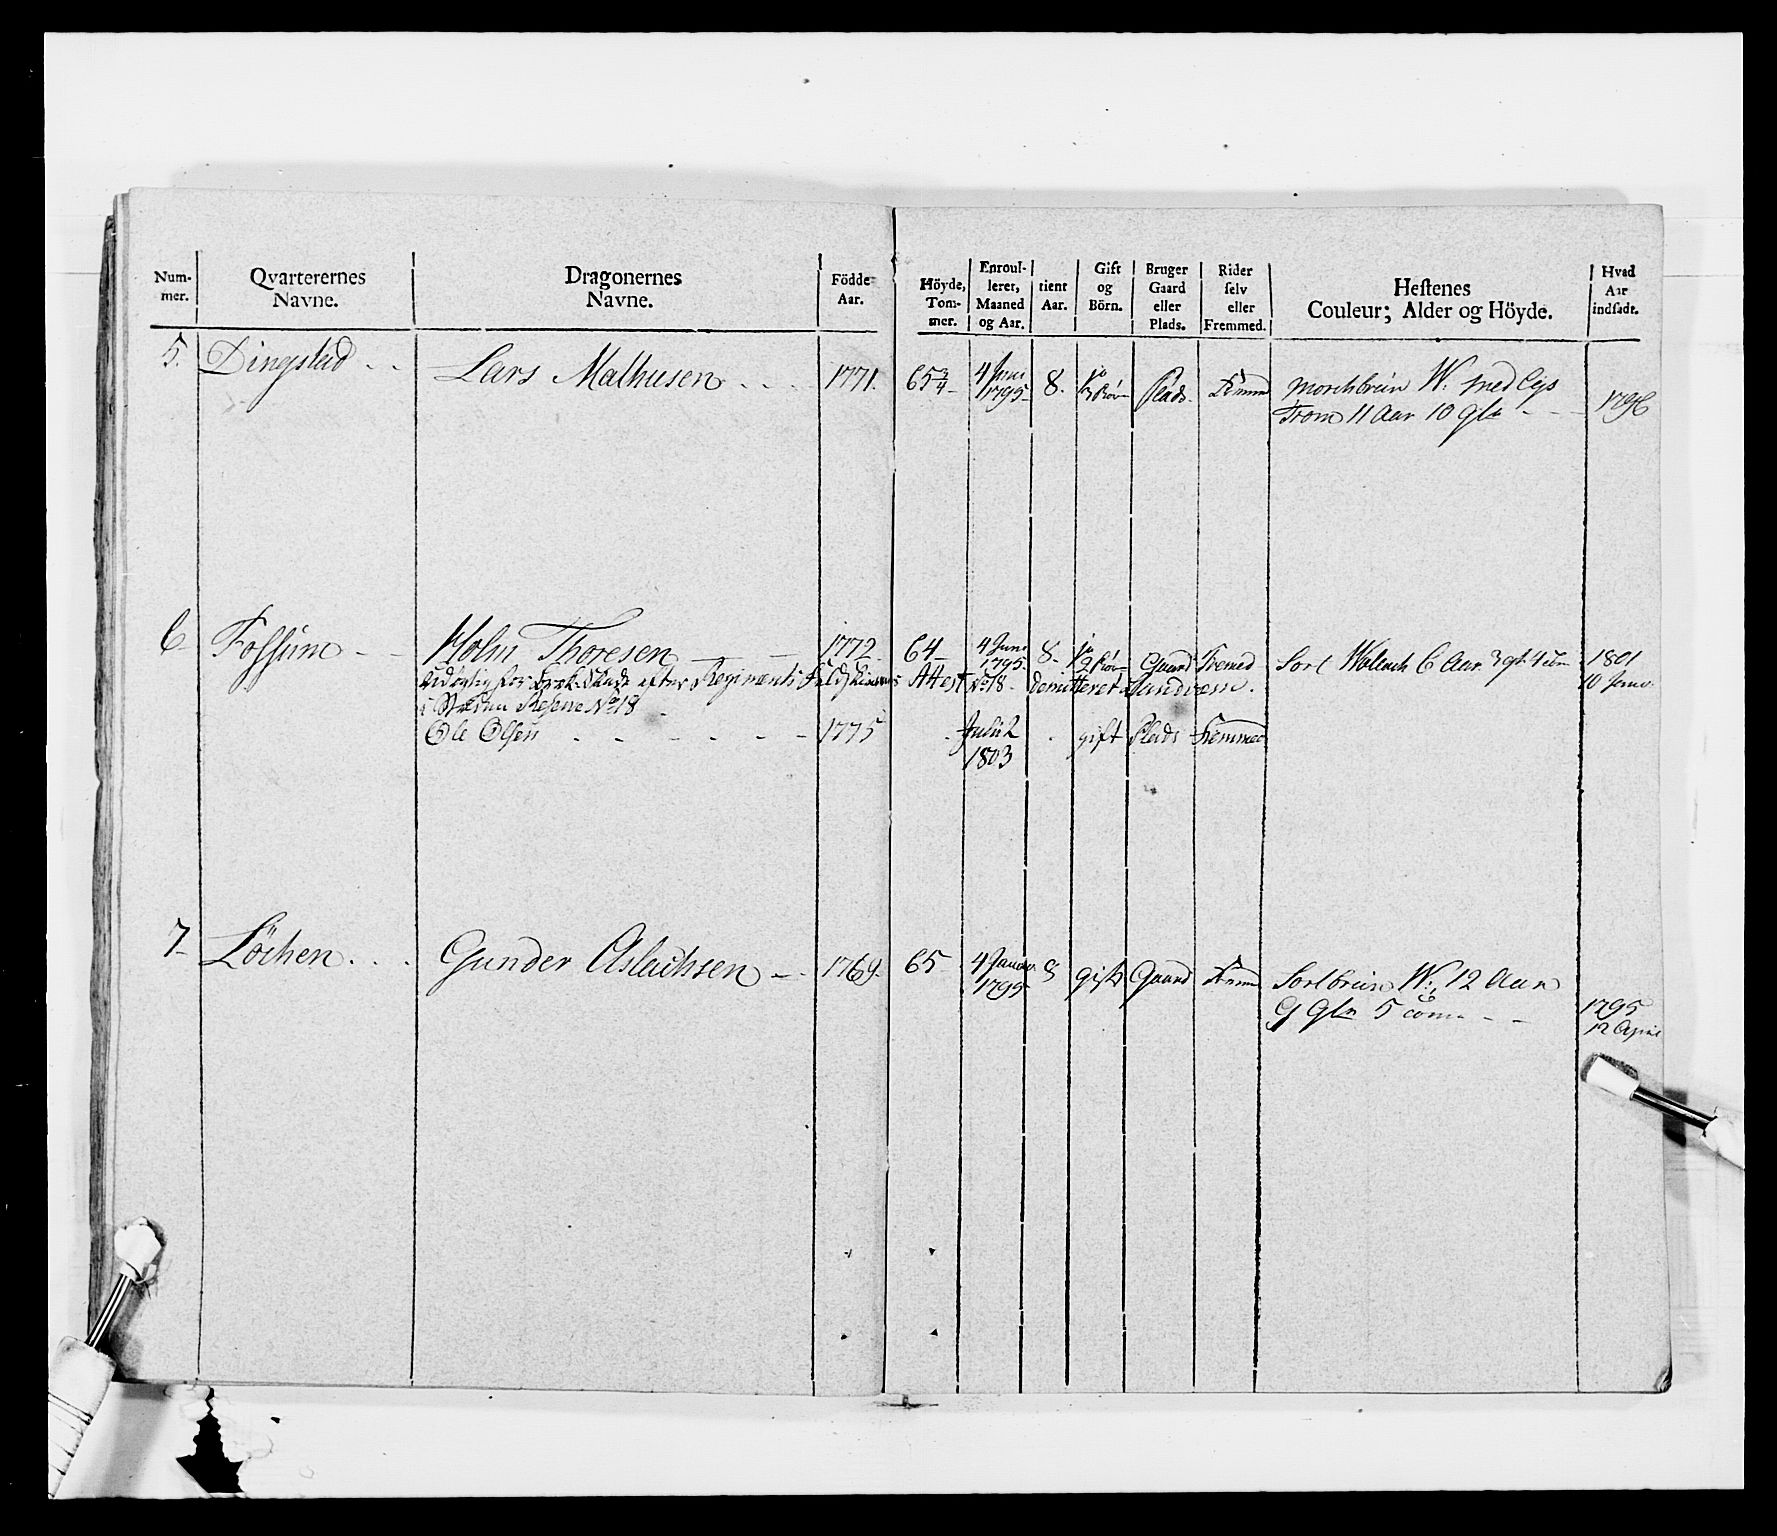 Num-
mer.
Qvarterernes
Navne.
Dragonernes
Navne.
Födde
Aar.
Höyde,
Tom-
mer.
Enroul-
lerer,
Maaned
og Aar.
tient
Aar.
Gift
og
Börn.
Bruger
Gaard
eller
Plads.
Rider
selv
eller
Fremmed.
Hestenes
Couleur; Alder og Höyde.
Hvad
Aar
indsadt.
5. Dingstad - - Lars Mathusen - - - 1771. 65 3/4 - 4 Juni 8. Plads.
1795
morchbrun W: med
11 Aar 10 - - - 1796
6 Fossum - - Holm Thoresen - - 1772 64 4 Juni 8. 2 Börn Gaard Fremed Sort Walach 6 Aar 3 qt 1801
1795
10
efter Regiments Attest No 18. demitteret
No 18
Ole Olsen - - - - - - 1775 Julii 2 gift Plads Fremmed
1803
7 Löchen. . . Gunder Aslachsen - - 1769. 65 4 8 gift Gaard
1795
Sortbrun W: 12 Aar
9 5 - -
1795
12 April